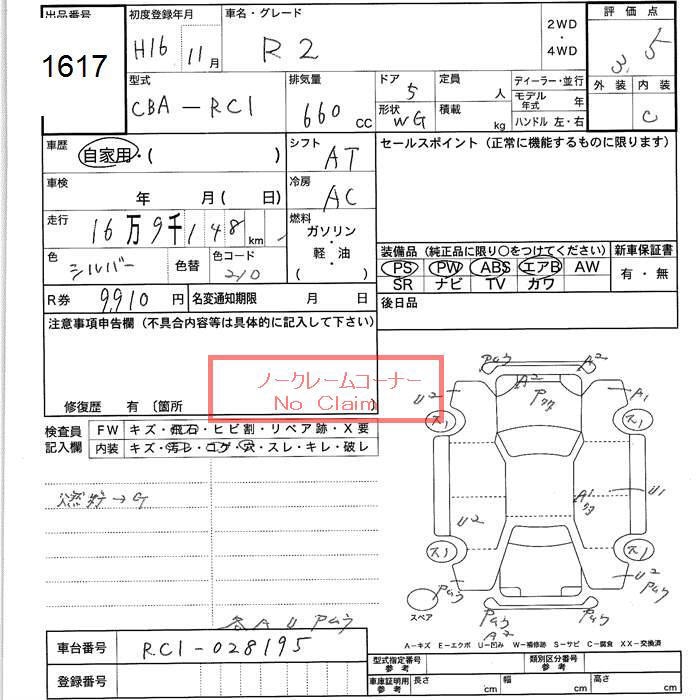 出品番号
1617
初度登録年月
H16 11月
車名・グレード
R2
2WD
・
4WD
評価点
3.5
外装 内装
C
型式
CBA-RC1
排気量
660 cc
ドア
5
形状
WG
定員
人
積載
kg
ディーラー・並行
モデル年式 年
ハンドル 左・右
車歴
自家用・( )
シフト
AT
セールスポイント(正常に機能するものに限ります)
車検
年 月( 日)
冷房
AC
走行
16万9千148km
燃料
ガソリン
・
軽・油
( )
色
シルバー
色替
色コード
210
装備品(純正品に限り○をつけてください)
新車保証書
PS PW ABS エアB AW
有・無
SR ナビ TV カワ
R券 9,910円
名変通知期限 月 日
後日品
注意事項申告欄(不具合内容等は具体的に記入して下さい)
ノークレームコーナー
No Claim
修復歴 有〔箇所
検査員記入欄
FW キズ・飛石・ヒビ割・リペア跡・X要
内装 キズ・汚レ・コゲ・穴・スレ・キレ・破レ
各AUPムラ
Pムラ A2
U2 A2 A1
ス1 ス1
A1 U1
U2
ス1 ス1
U2
Pムラ
Pムラ Pムラ
A2
スペア
A-キズ E-エクボ U-凹み W-補修跡 S-サビ C-腐食 XX-交換済
車台番号 RC1-028195
登録番号
型式指定番号 参考
類別区分番号 参考
車庫証明用 参考
長さ cm
幅 cm
高さ cm